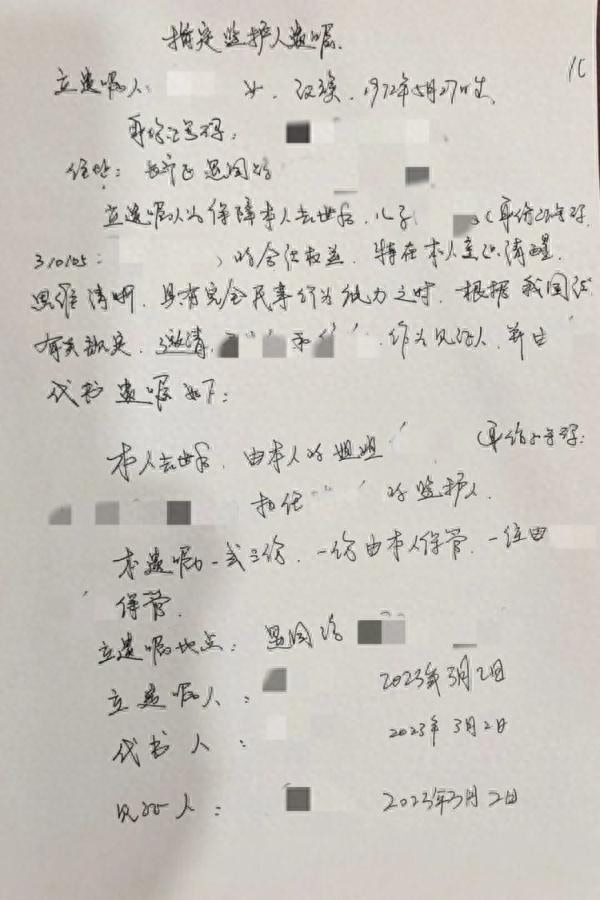 指定监护人遗嘱.
立遗嘱人 女, 汉族, 1972年5月27日生,
身份证号码:
住址: 长宁区 路
立遗嘱人为保障本人去世后, 儿子 (身份证号码
310105: )的合法权益, 特在本人意识清醒,
思维清晰, 具有完全民事行为能力之时, 根据我国法
有关规定, 邀请 和 作为见证人, 并由
代书遗嘱如下:
本人去世后, 由本人的姐姐 (身份证号码:
担任 的监护人.
本遗嘱一式三份, 一份由本人保管, 一份由
保管.
立遗嘱地点: 路
立遗嘱人: 2023年3月2日
代书人: 2023年3月2日
见证人: 2023年3月2日